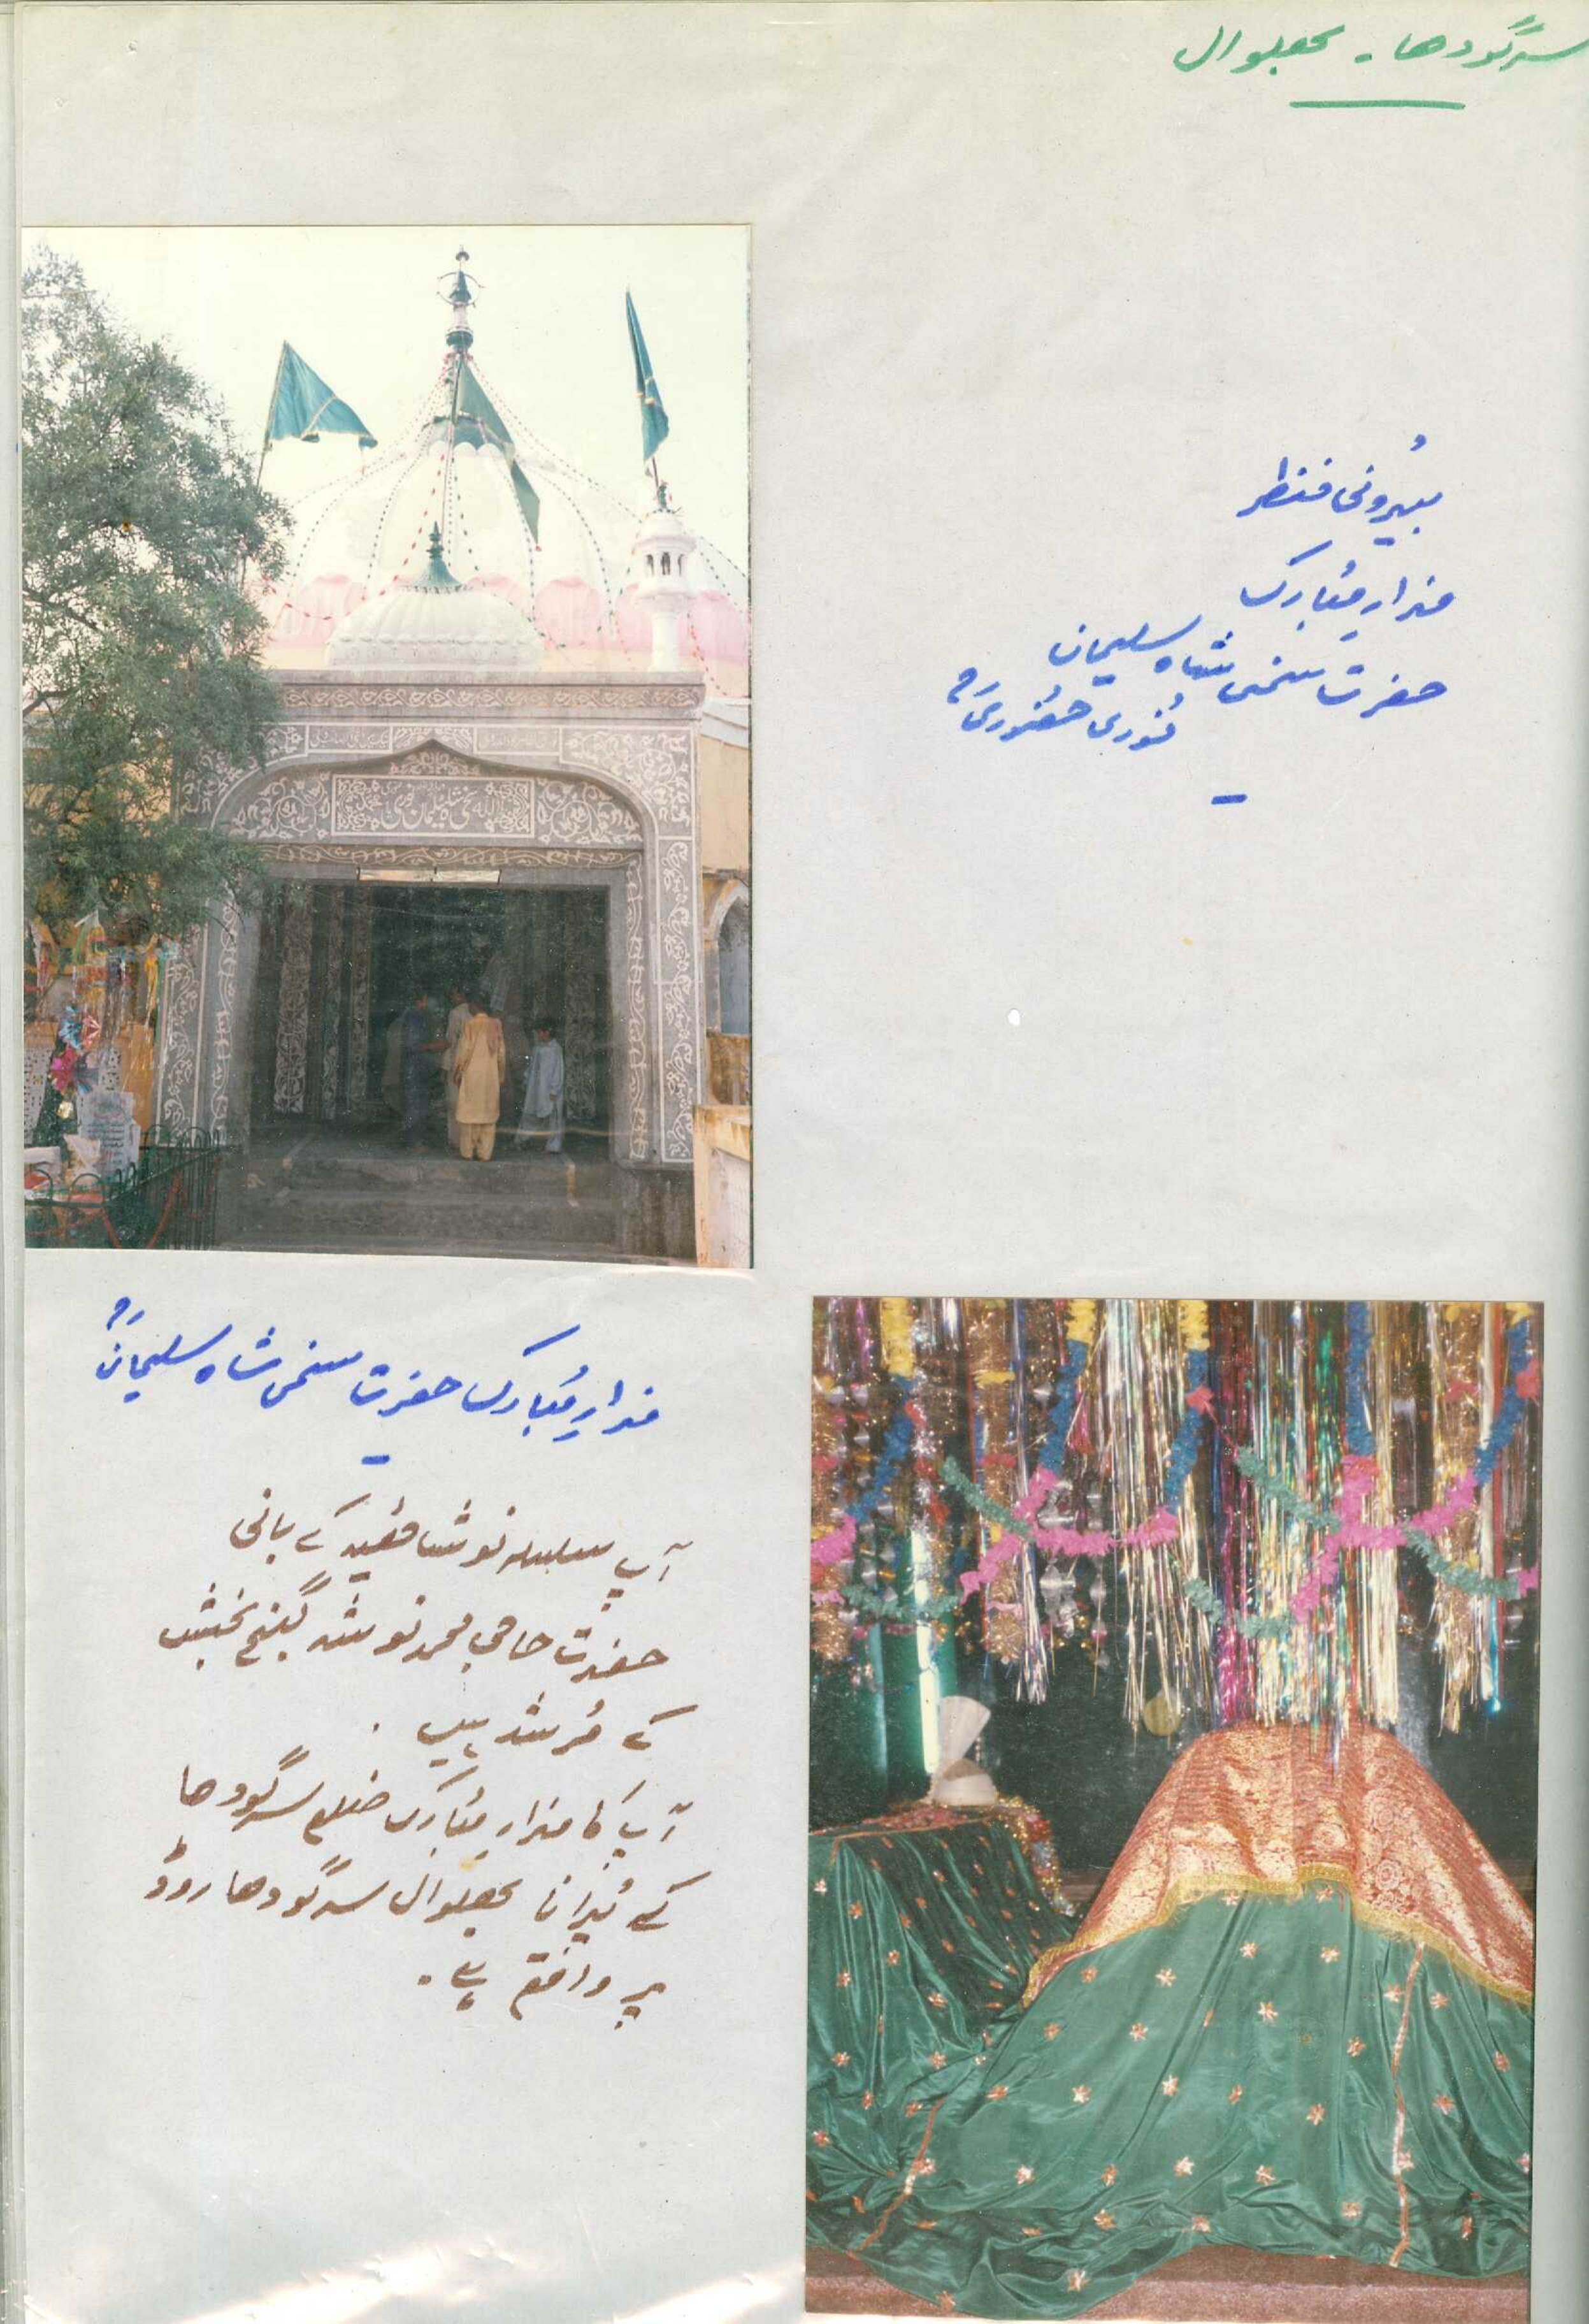 سرگودھا - بھلوال
بیرونی منظر
مزارِ مُبارک
حضرت سخی شاہ سلیمان
نُوری حضُوریؒ
سخی شاہ سلیمان نوری
مزارِ مُبارک حضرت سخی شاہ سلیمانؒ
آپ سلسلہ نوشاہیہ کے بانی
حضرت حاجی محمد نوشہ گنج بخش
کے مُرشد ہیں .
آپ کا مزارِ مُبارک ضلع سرگودھا
کے پُرانا بھلوال سرگودھا روڈ
پر واقع ہے .